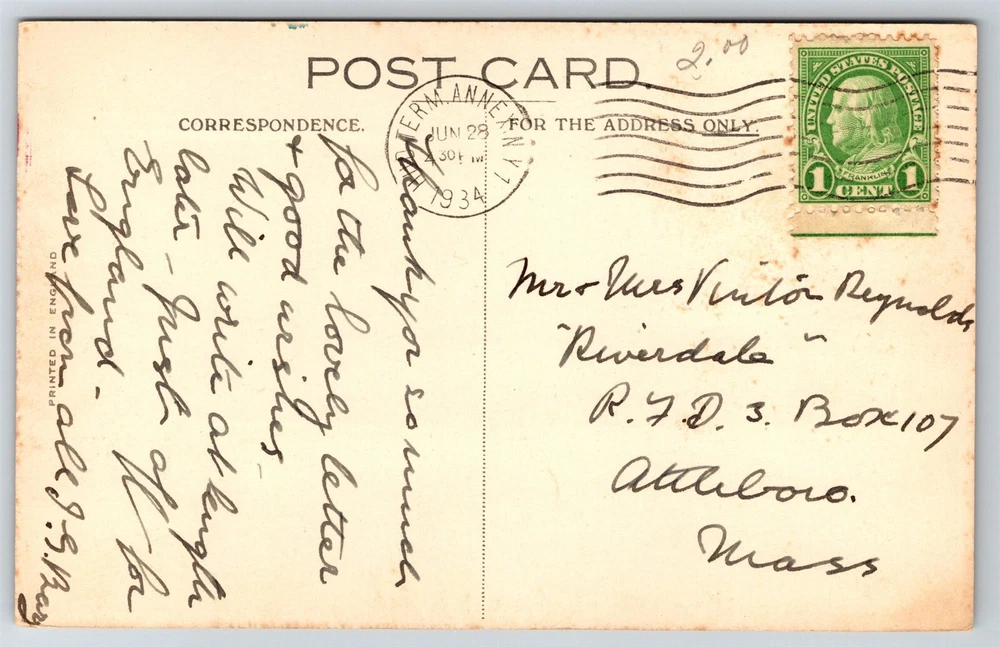 2.00
POST CARD.
CORRESPONDENCE.
FOR THE ADDRESS ONLY.
TERM. ANNEX N.Y.
JUN 28
30 PM
1934
UNITED STATES POSTAGE
FRANKLIN
1 CENT 1
Thank you so much
for the lovely letter
& good wishes -
Will write at length
later - Just off for
England -
Love from all
Mr & Mrs Vinton Reynolds
"Riverdale"
R.F.D. 3. Box 107
Attleboro.
Mass
PRINTED IN ENGLAND